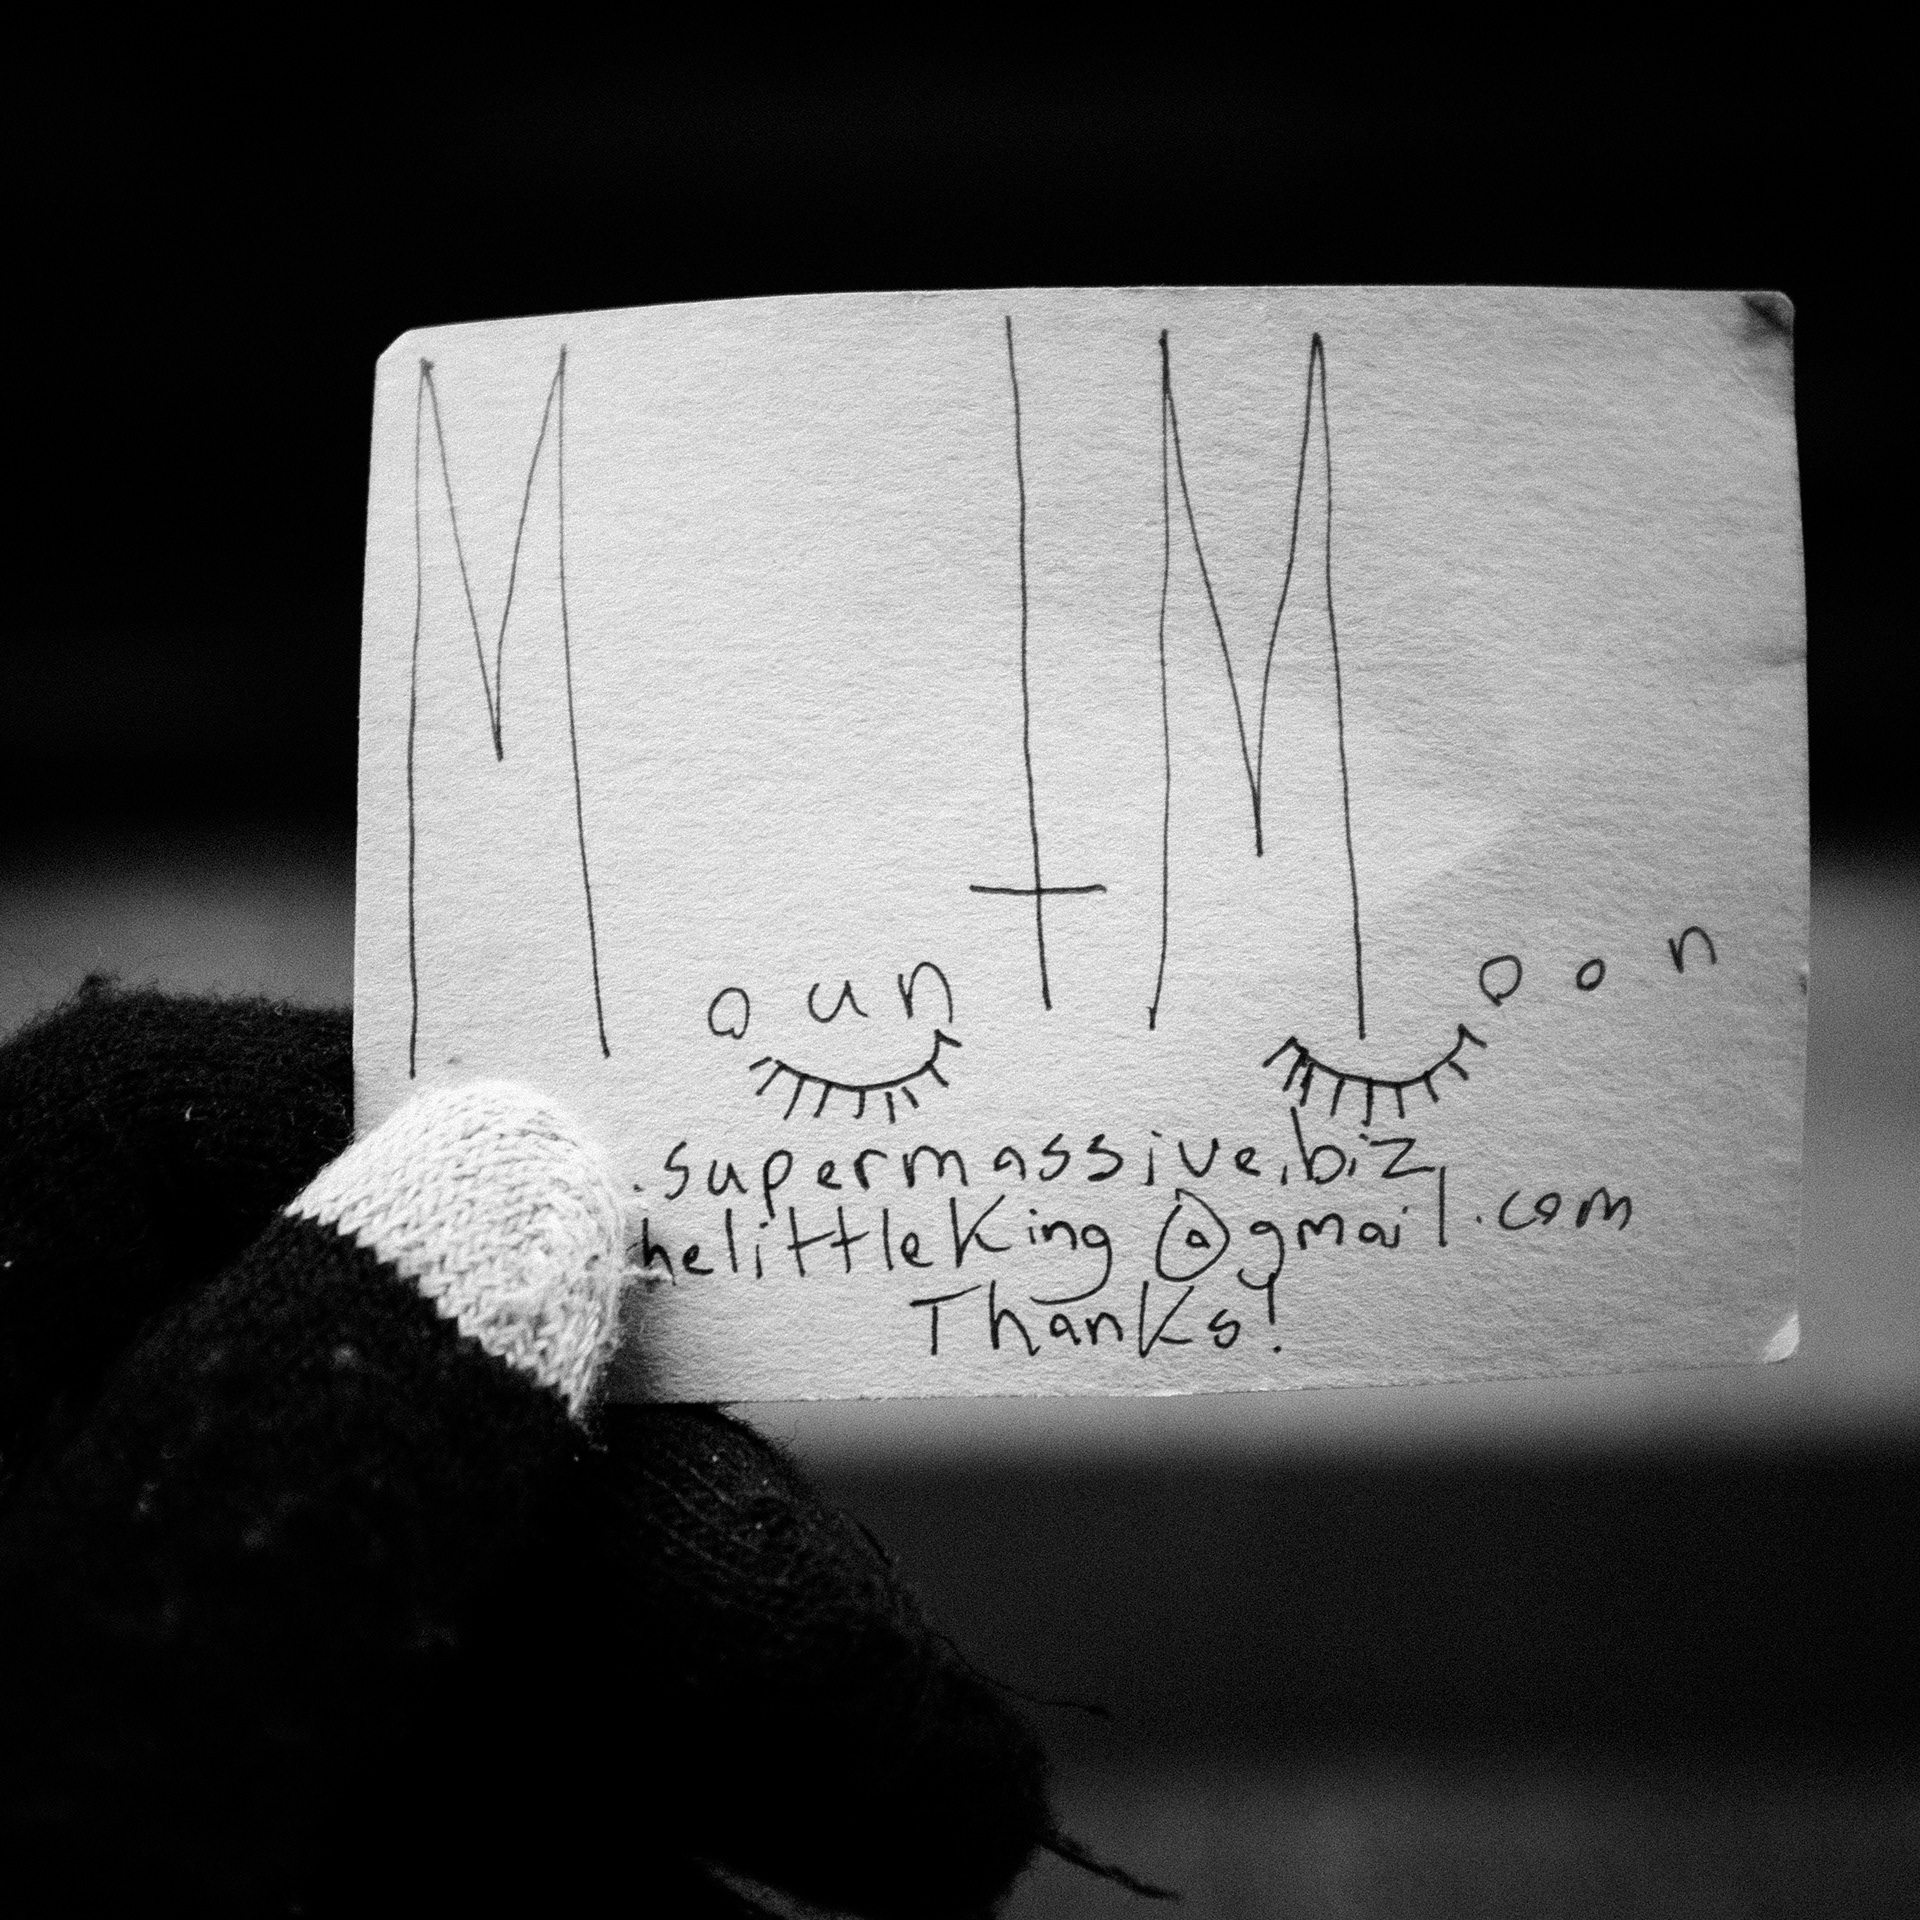 Mount Moon
.supermassive.biz
helittleKing@gmail.com
Thanks!